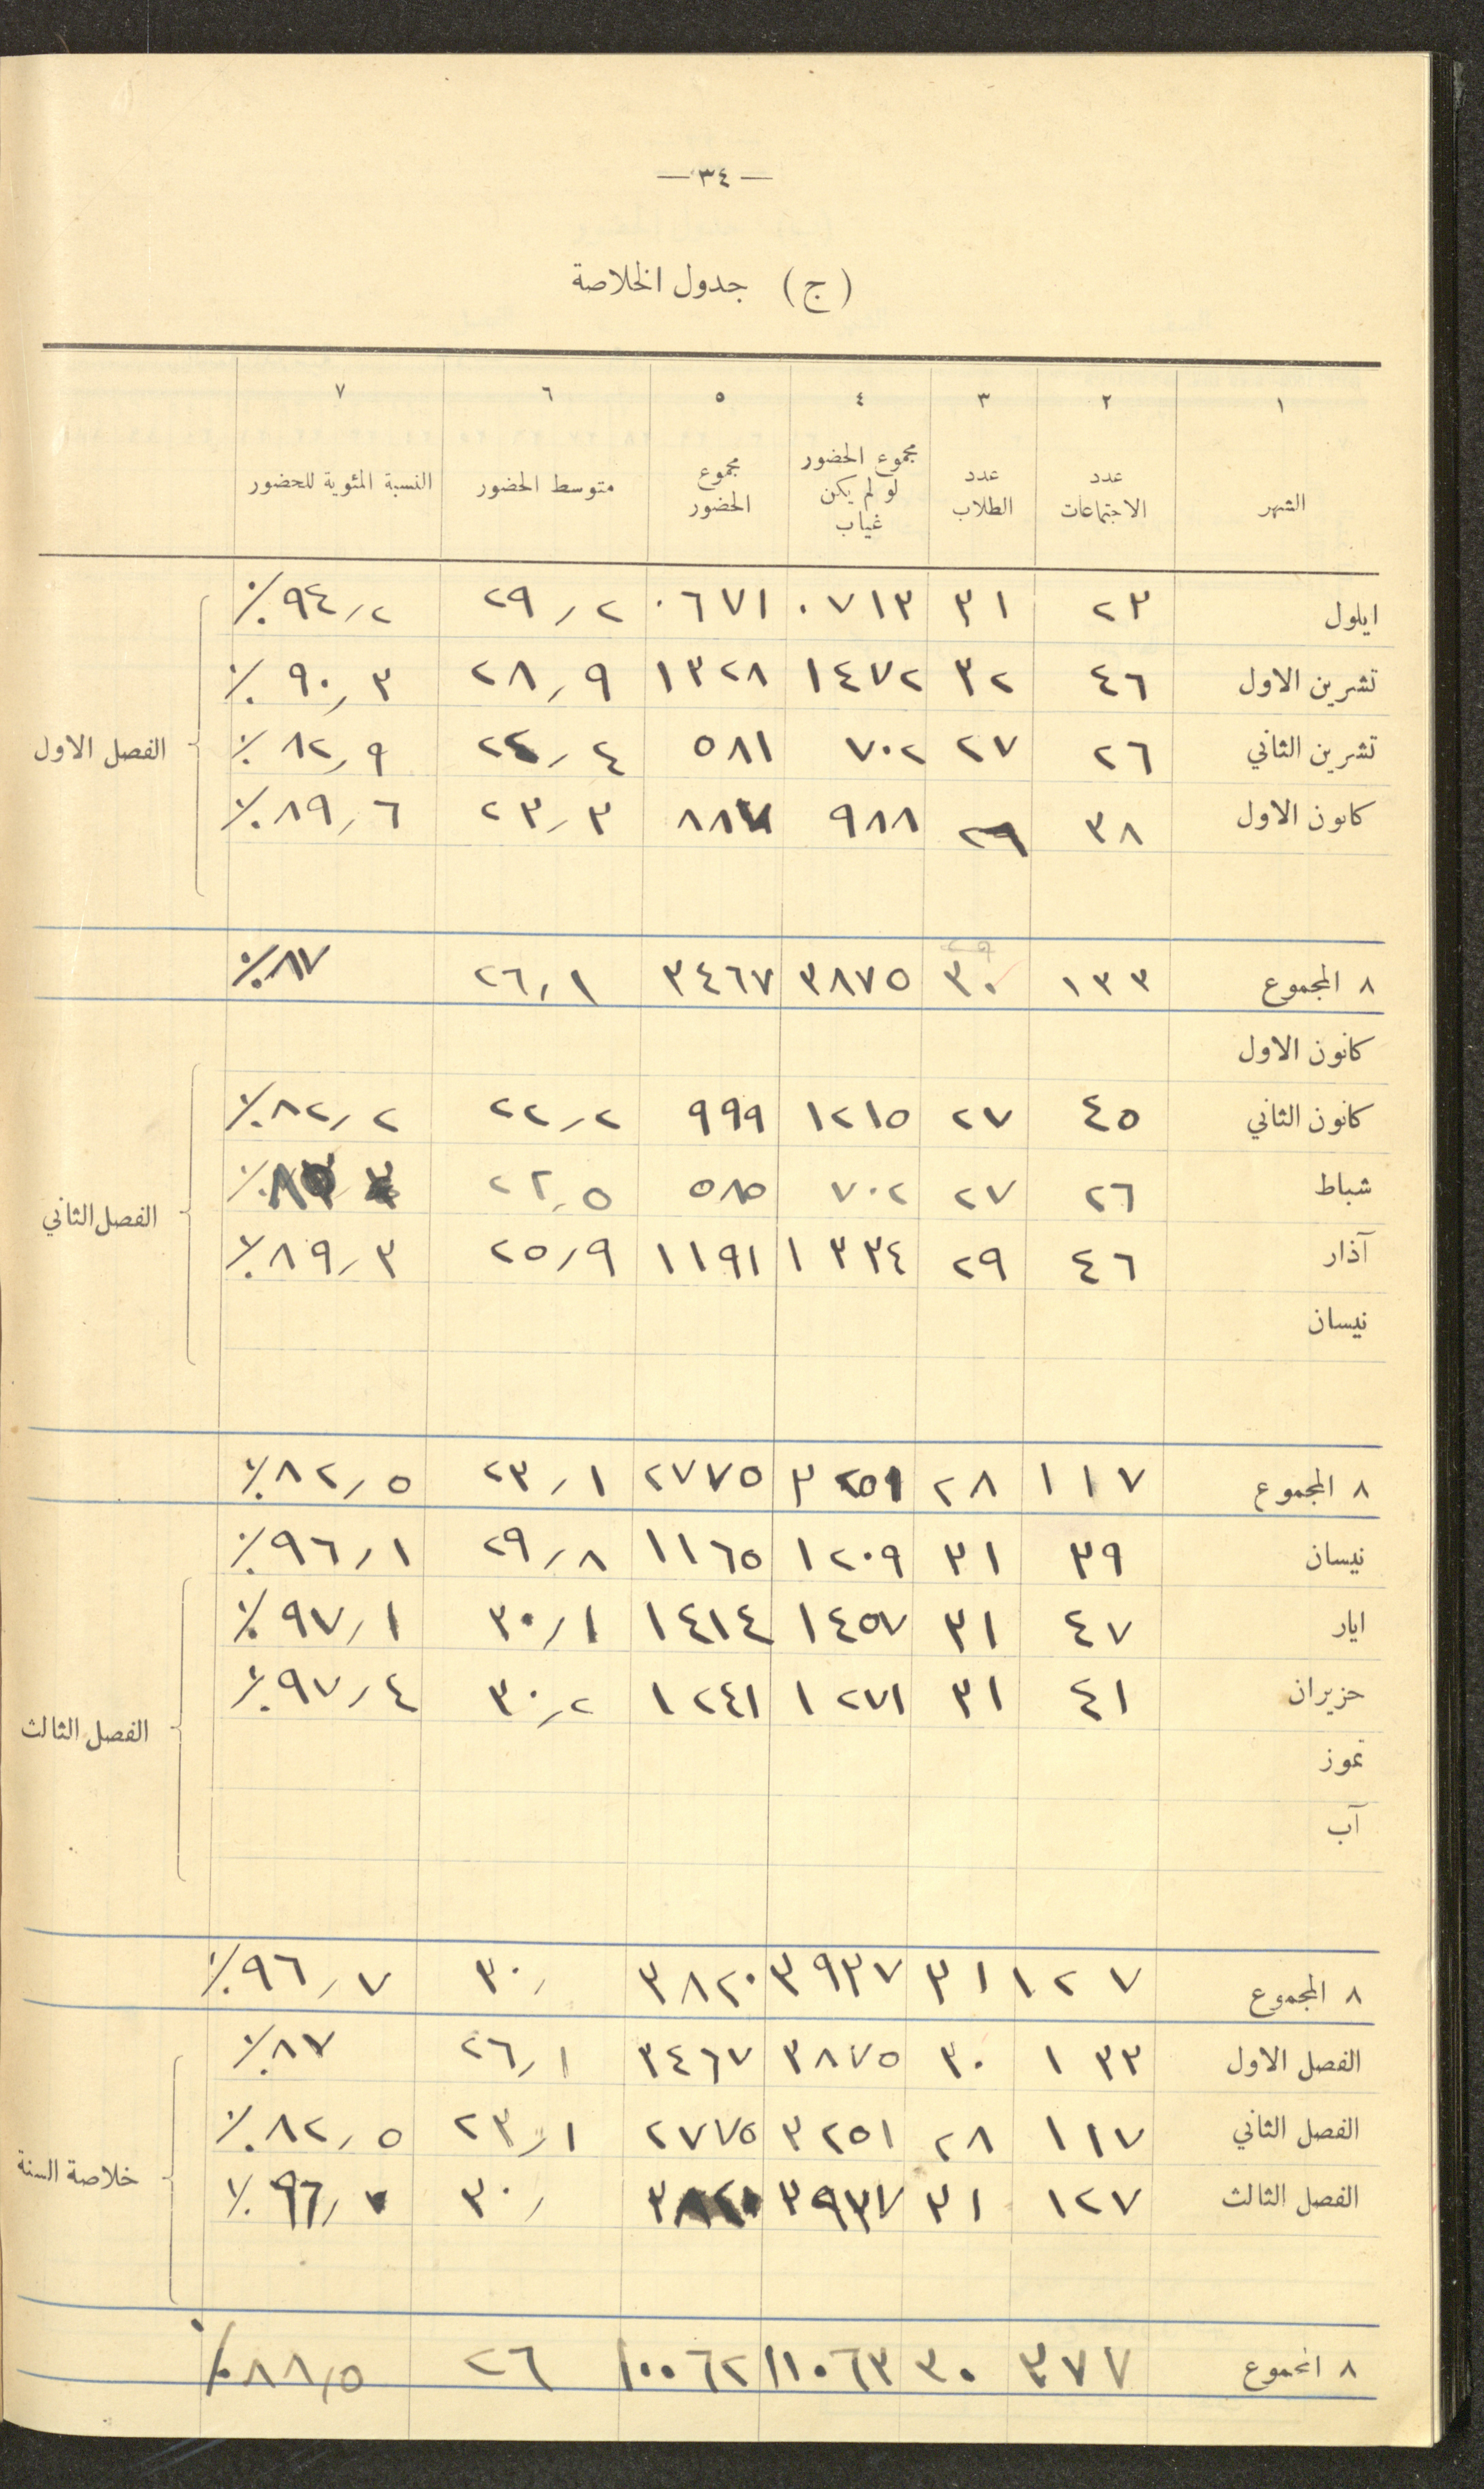 — ٣٤ —
(ج) جدول الخلاصة
١ ٢ ٣ ٤ ٥ ٦ ٧
الشهر عدد الاجتماعات عدد الطلاب مجموع الحضور لو لم يكن غياب مجموع الحضور متوسط الحضور النسبة المئوية للحضور
ايلول ٢٣ ٣١ ٠٧١٣ ٠٦٧١ ٢٩٫٢ ٩٤٫٢٪
تشرين الاول ٤٦ ٣٢ ١٤٧٢ ١٣٢٨ ٢٨٫٩ ٩٠٫٣٪
الفصل الاول
تشرين الثاني ٢٦ ٢٧ ٧٠٢ ٥٨١ ٢٤٫٤ ٨٢٫٩٪
كانون الاول ٣٨ ٢٦ ٩٨٨ ٨٨٧ ٢٣٫٣ ٨٩٫٦٪
٨ المجموع ١٣٣ ٣٠ ٣٨٧٥ ٣٤٦٧ ٢٦٫١ ٨٧٪
كانون الاول
كانون الثاني ٤٥ ٢٧ ١٢١٥ ٩٩٩ ٢٢٫٢ ٨٢٫٢٪
شباط ٢٦ ٢٧ ٧٠٢ ٥٨٥ ٢٢٫٥
الفصل الثاني
آذار ٤٦ ٢٩ ١٣٣٤ ١١٩١ ٢٥٫٩ ٨٩٫٣٪
نيسان
٨ المجموع ١١٧ ٢٨ ٣٢٥١ ٢٧٧٥ ٢٣٫١ ٨٢٫٥٪
نيسان ٣٩ ٣١ ١٢٠٩ ١١٦٥ ٢٩٫٨ ٩٦٫١٪
ايار ٤٧ ٣١ ١٤٥٧ ١٤١٤ ٣٠٫١ ٩٧٫١٪
حزيران ٤١ ٣١ ١٢٧١ ١٢٤١ ٣٠٫٢ ٩٧٫٤٪
الفصل الثالث
تموز
آب
٨ المجموع ١٢٧ ٣١ ٣٩٣٧ ٣٨٢٠ ٣٠٫ ٩٦٫٧٪
الفصل الاول ١٣٣ ٣٠ ٣٨٧٥ ٣٤٦٧ ٢٦٫١ ٨٧٪
الفصل الثاني ١١٧ ٢٨ ٣٢٥١ ٢٧٧٥ ٢٣٫١ ٨٢٫٥٪
خلاصة السنة
الفصل الثالث ١٢٧ ٣١ ٣٩٣٧ ٣٨٢٠ ٣٠٫ ٩٦٫٧٪
٨ المجموع ٣٧٧ ٣٠ ١١٠٦٣ ١٠٠٦٢ ٢٦ ٨٨٫٥٪